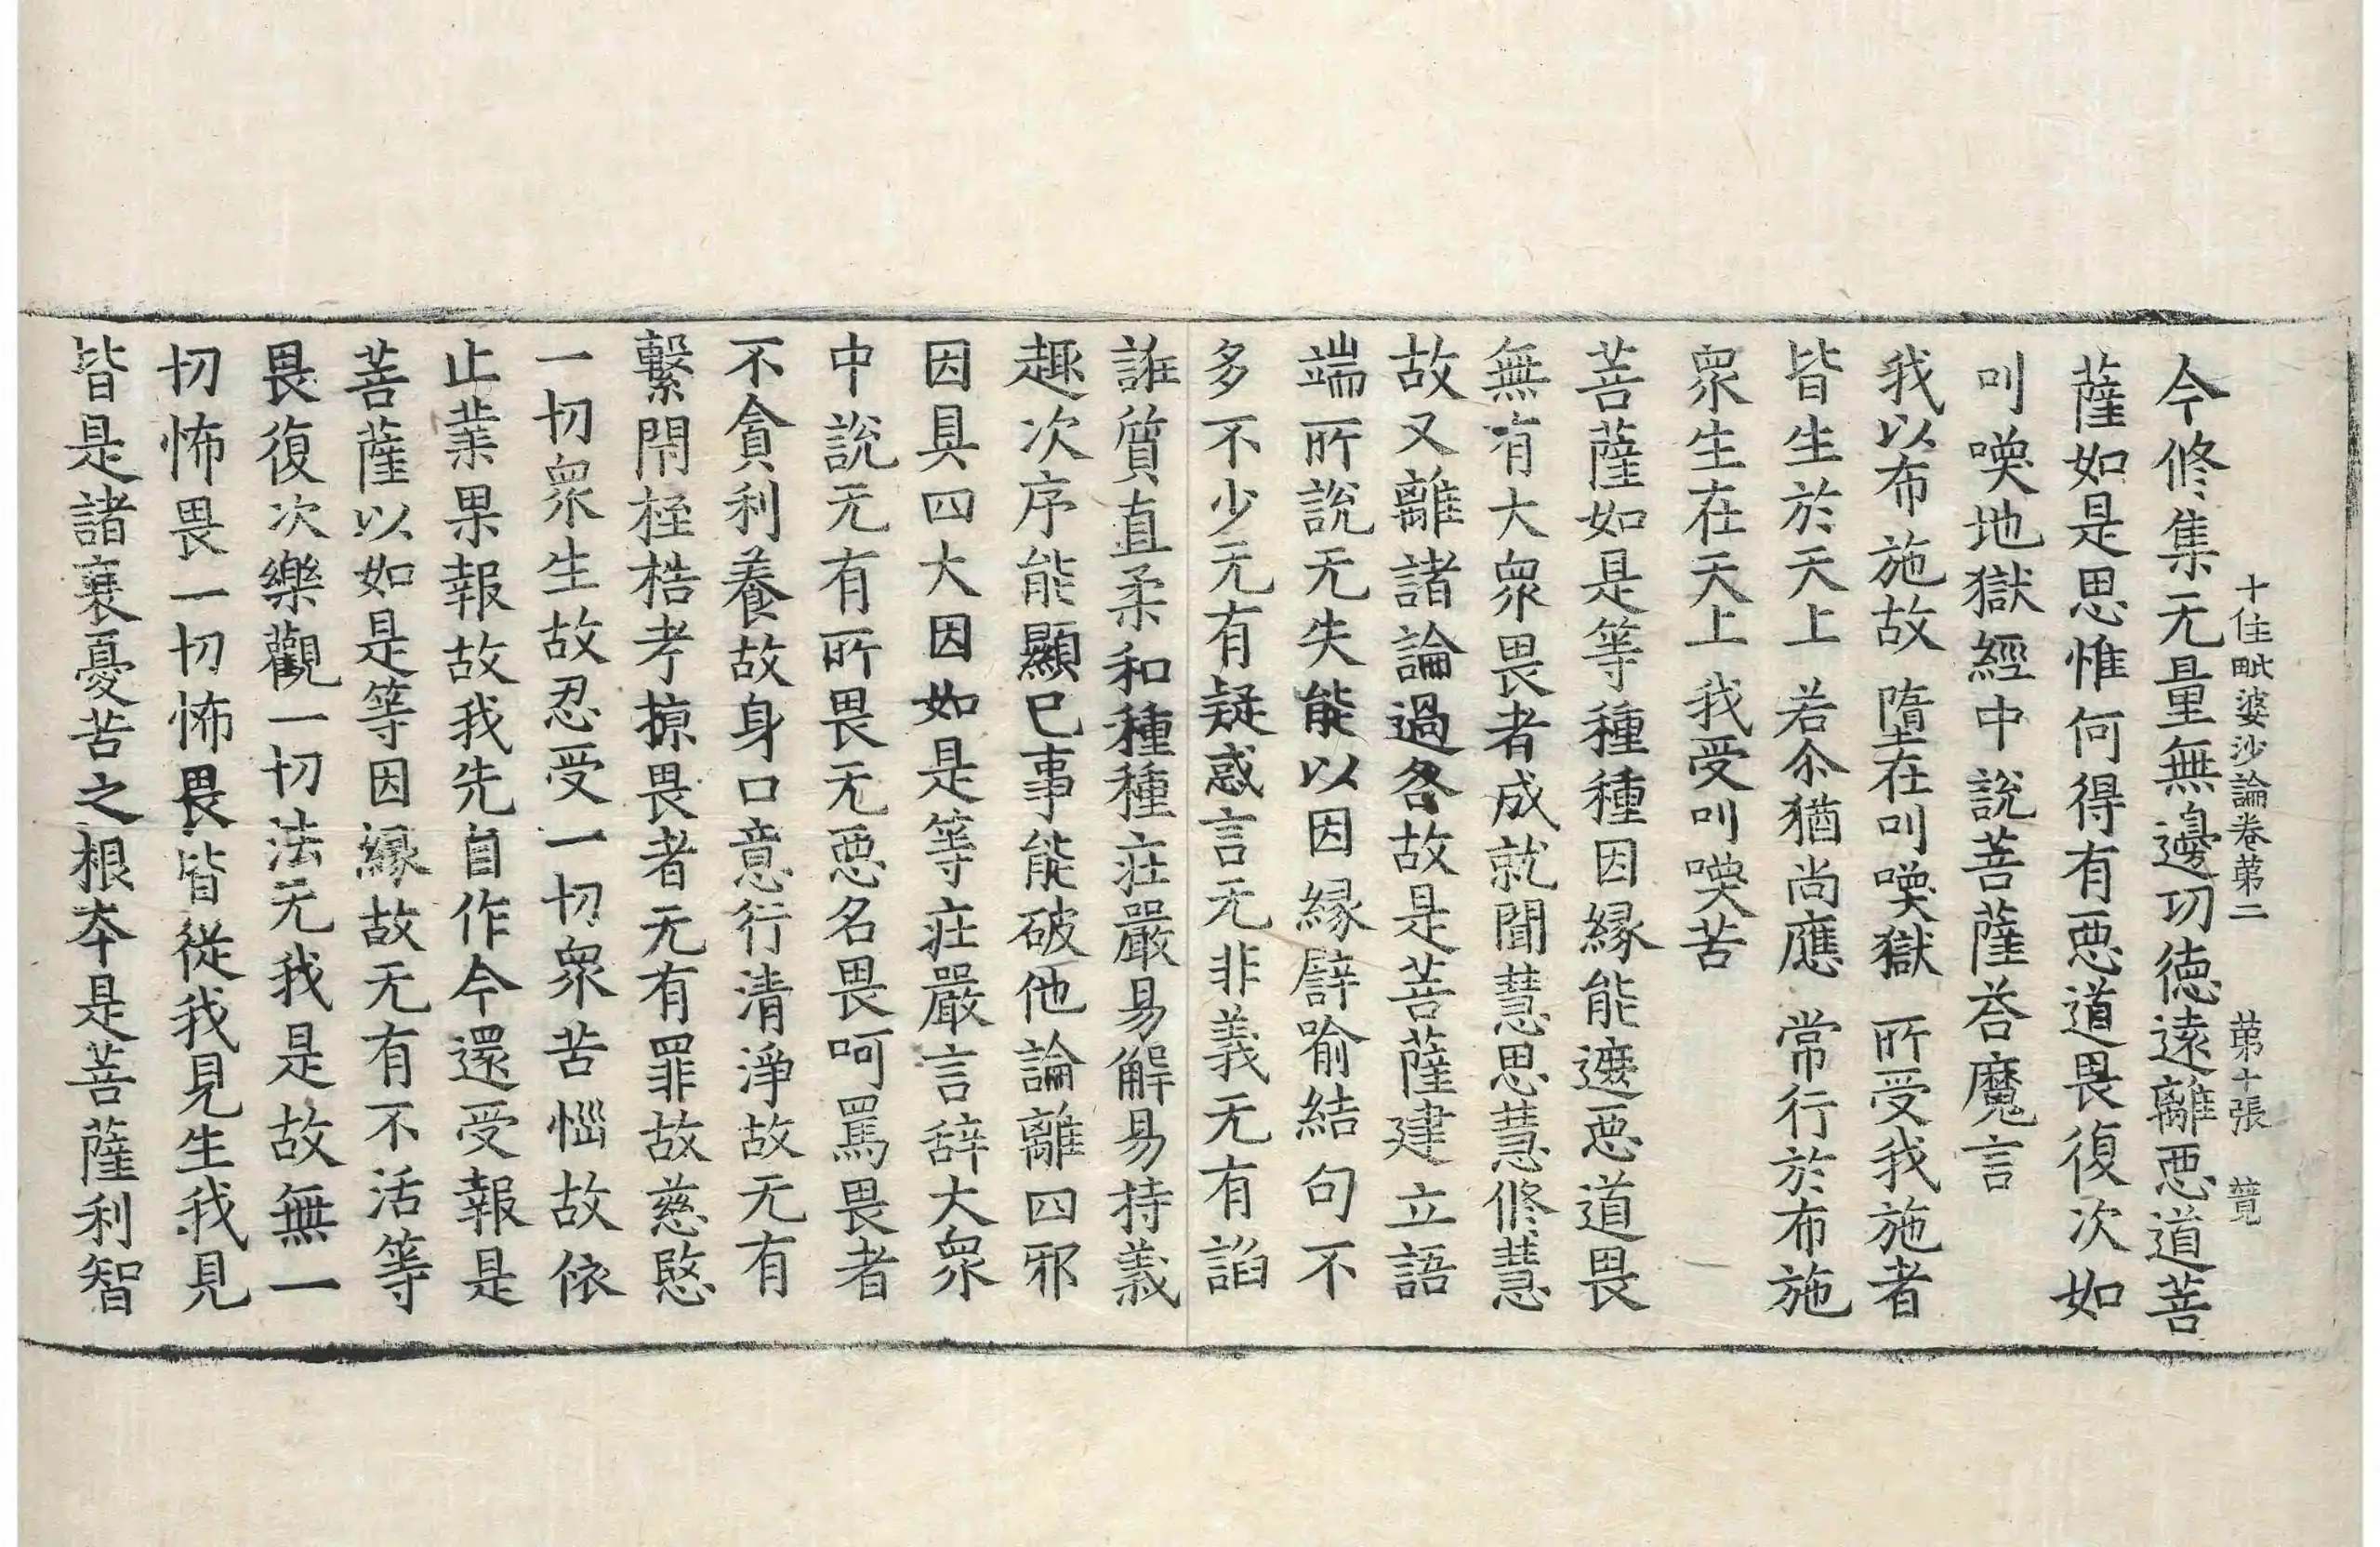 十住毗婆沙論卷苐二　苐十張　薓
今修集无量無邊功德遠離惡道菩
薩如是思惟何得有惡道畏復次如
叫喚地獄經中說菩薩荅魔言
我以布施故　墮在叫喚獄　所受我施者
皆生於天上　若尒猶尚應　常行於布施
衆生在天上　我受叫喚苦
菩薩如是等種種因緣能遮惡道畏
無有大衆畏者成就聞慧思慧修慧
故又離諸論過咎故是菩薩建立語
端所說无失能以因緣譬喻結句不
多不少无有疑惑言无非義无有謟
誑質直柔和種種莊嚴易解易持義
趣次序能顯已事能破他論離四邪
因具四大因如是等莊嚴言辞大衆
中說无有所畏无惡名畏呵罵畏者
不貪利養故身口意行清淨故无有
繫閇桎梏考掠畏者无有罪故慈愍
一切衆生故忍受一切衆苦惱故依
止業果報故我先自作今還受報是
菩薩以如是等因緣故无有不活等
畏復次樂觀一切法无我是故無一
切怖畏一切怖畏皆從我見生我見
皆是諸衰憂苦之根夲是菩薩利智